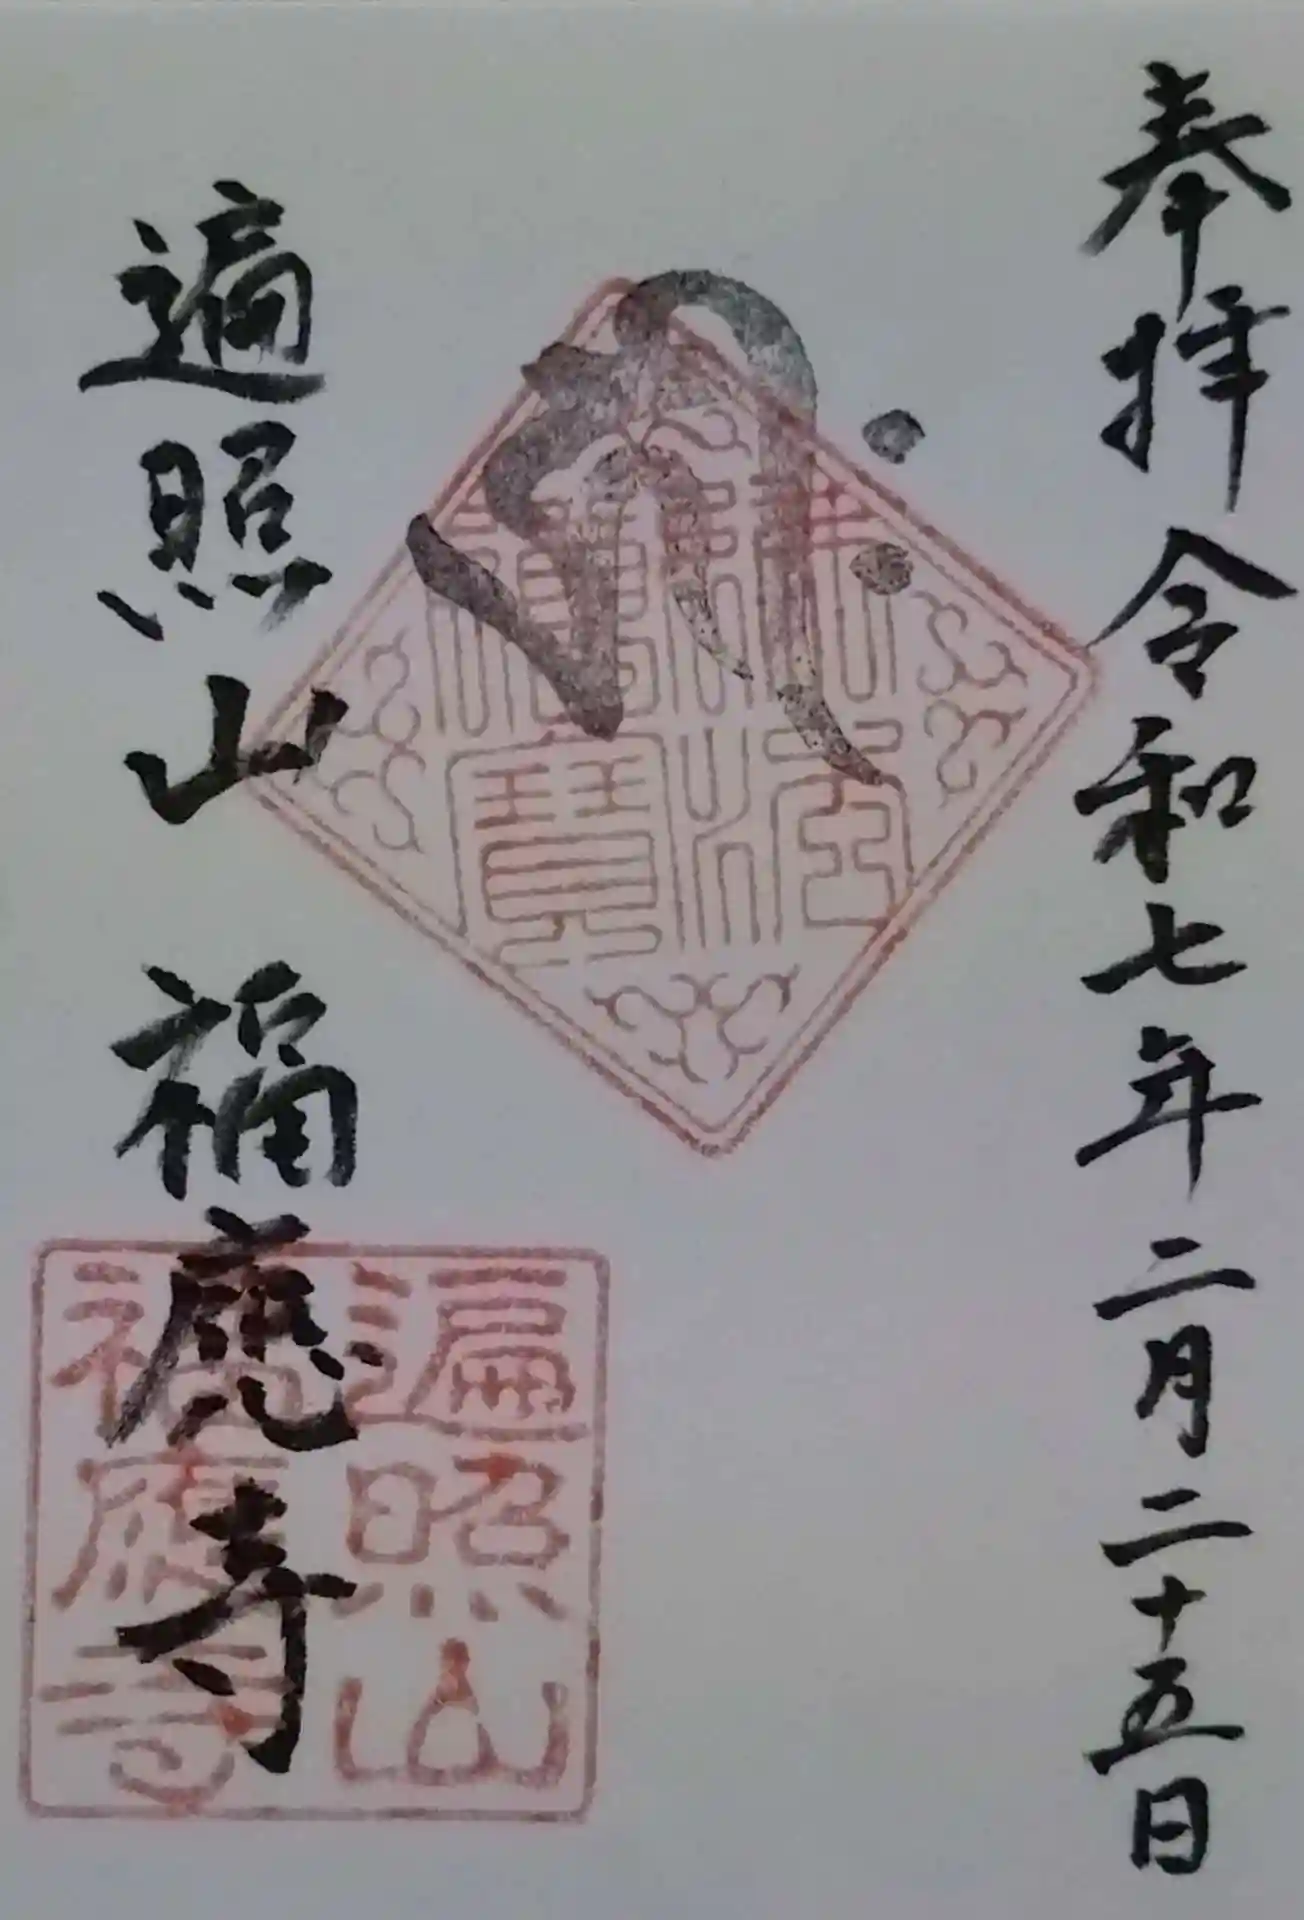 奉拝 令和七年二月二十五日
遍照山 福應寺
遍照山
福應寺